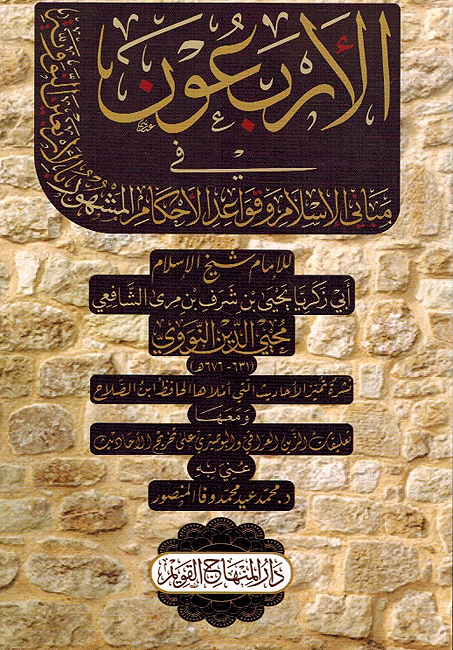 الأربعون
في
مباني الإسلام وقواعد الأحكام المشهور بالأربعين النووية
للإمام شيخ الإسلام
أبي زكريا يحيى بن شرف بن مري الشافعي
محيي الدين النووي
(٦٣١ - ٦٧٦هـ)
نشرة تميز الأحاديث التي أملاها الحافظ ابن الصلاح
ومعها
تعليقات الزين العراقي والبوصيري على تخريج الأحاديث
عني به
د. محمد عيد محمد وفا المنصور
دار المنهاج القويم